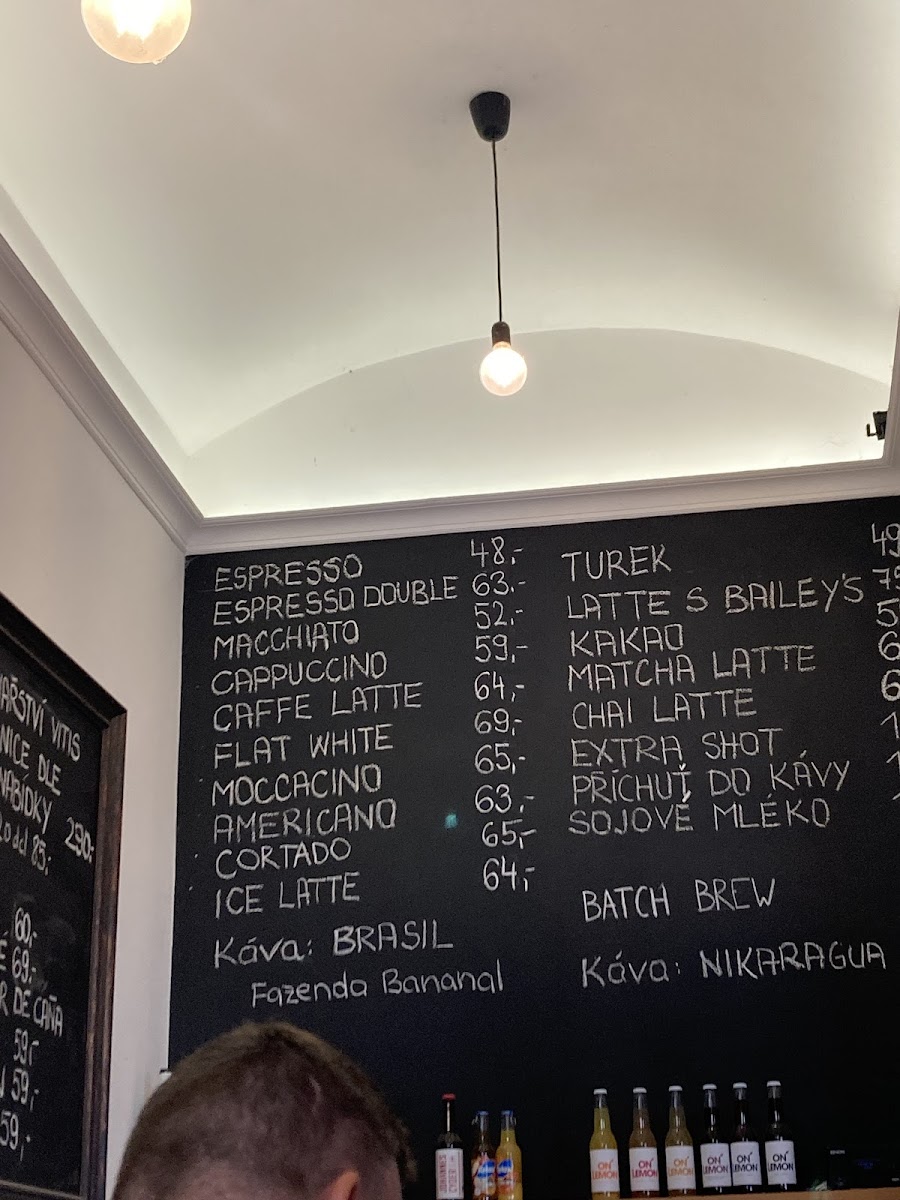 ESPRESSO 48,-
ESPRESSO DOUBLE 63.-
MACCHIATO 52,-
CAPPUCCINO 59,-
CAFFE LATTE 64,-
FLAT WHITE 69,-
MOCCACINO 65,-
AMERICANO 63,-
CORTADO 65,-
ICE LATTE 64,-
Káva: BRASIL
Fazenda Bananal
TUREK 49
LATTE S BAILEY'S
KAKAO
MATCHA LATTE
CHAI LATTE
EXTRA SHOT
PŘÍCHUŤ DO KÁVY
SOJOVÉ MLÉKO
BATCH BREW
Káva: NIKARAGUA
VITIS
DLE
NABÍDKY 290,-
od 85,-
60,-
69,-
DE CAÑA
59,-
59,-
59,-
ON LEMON
ON LEMON
ON LEMON
ON LEMON
ON LEMON
ON LEMON